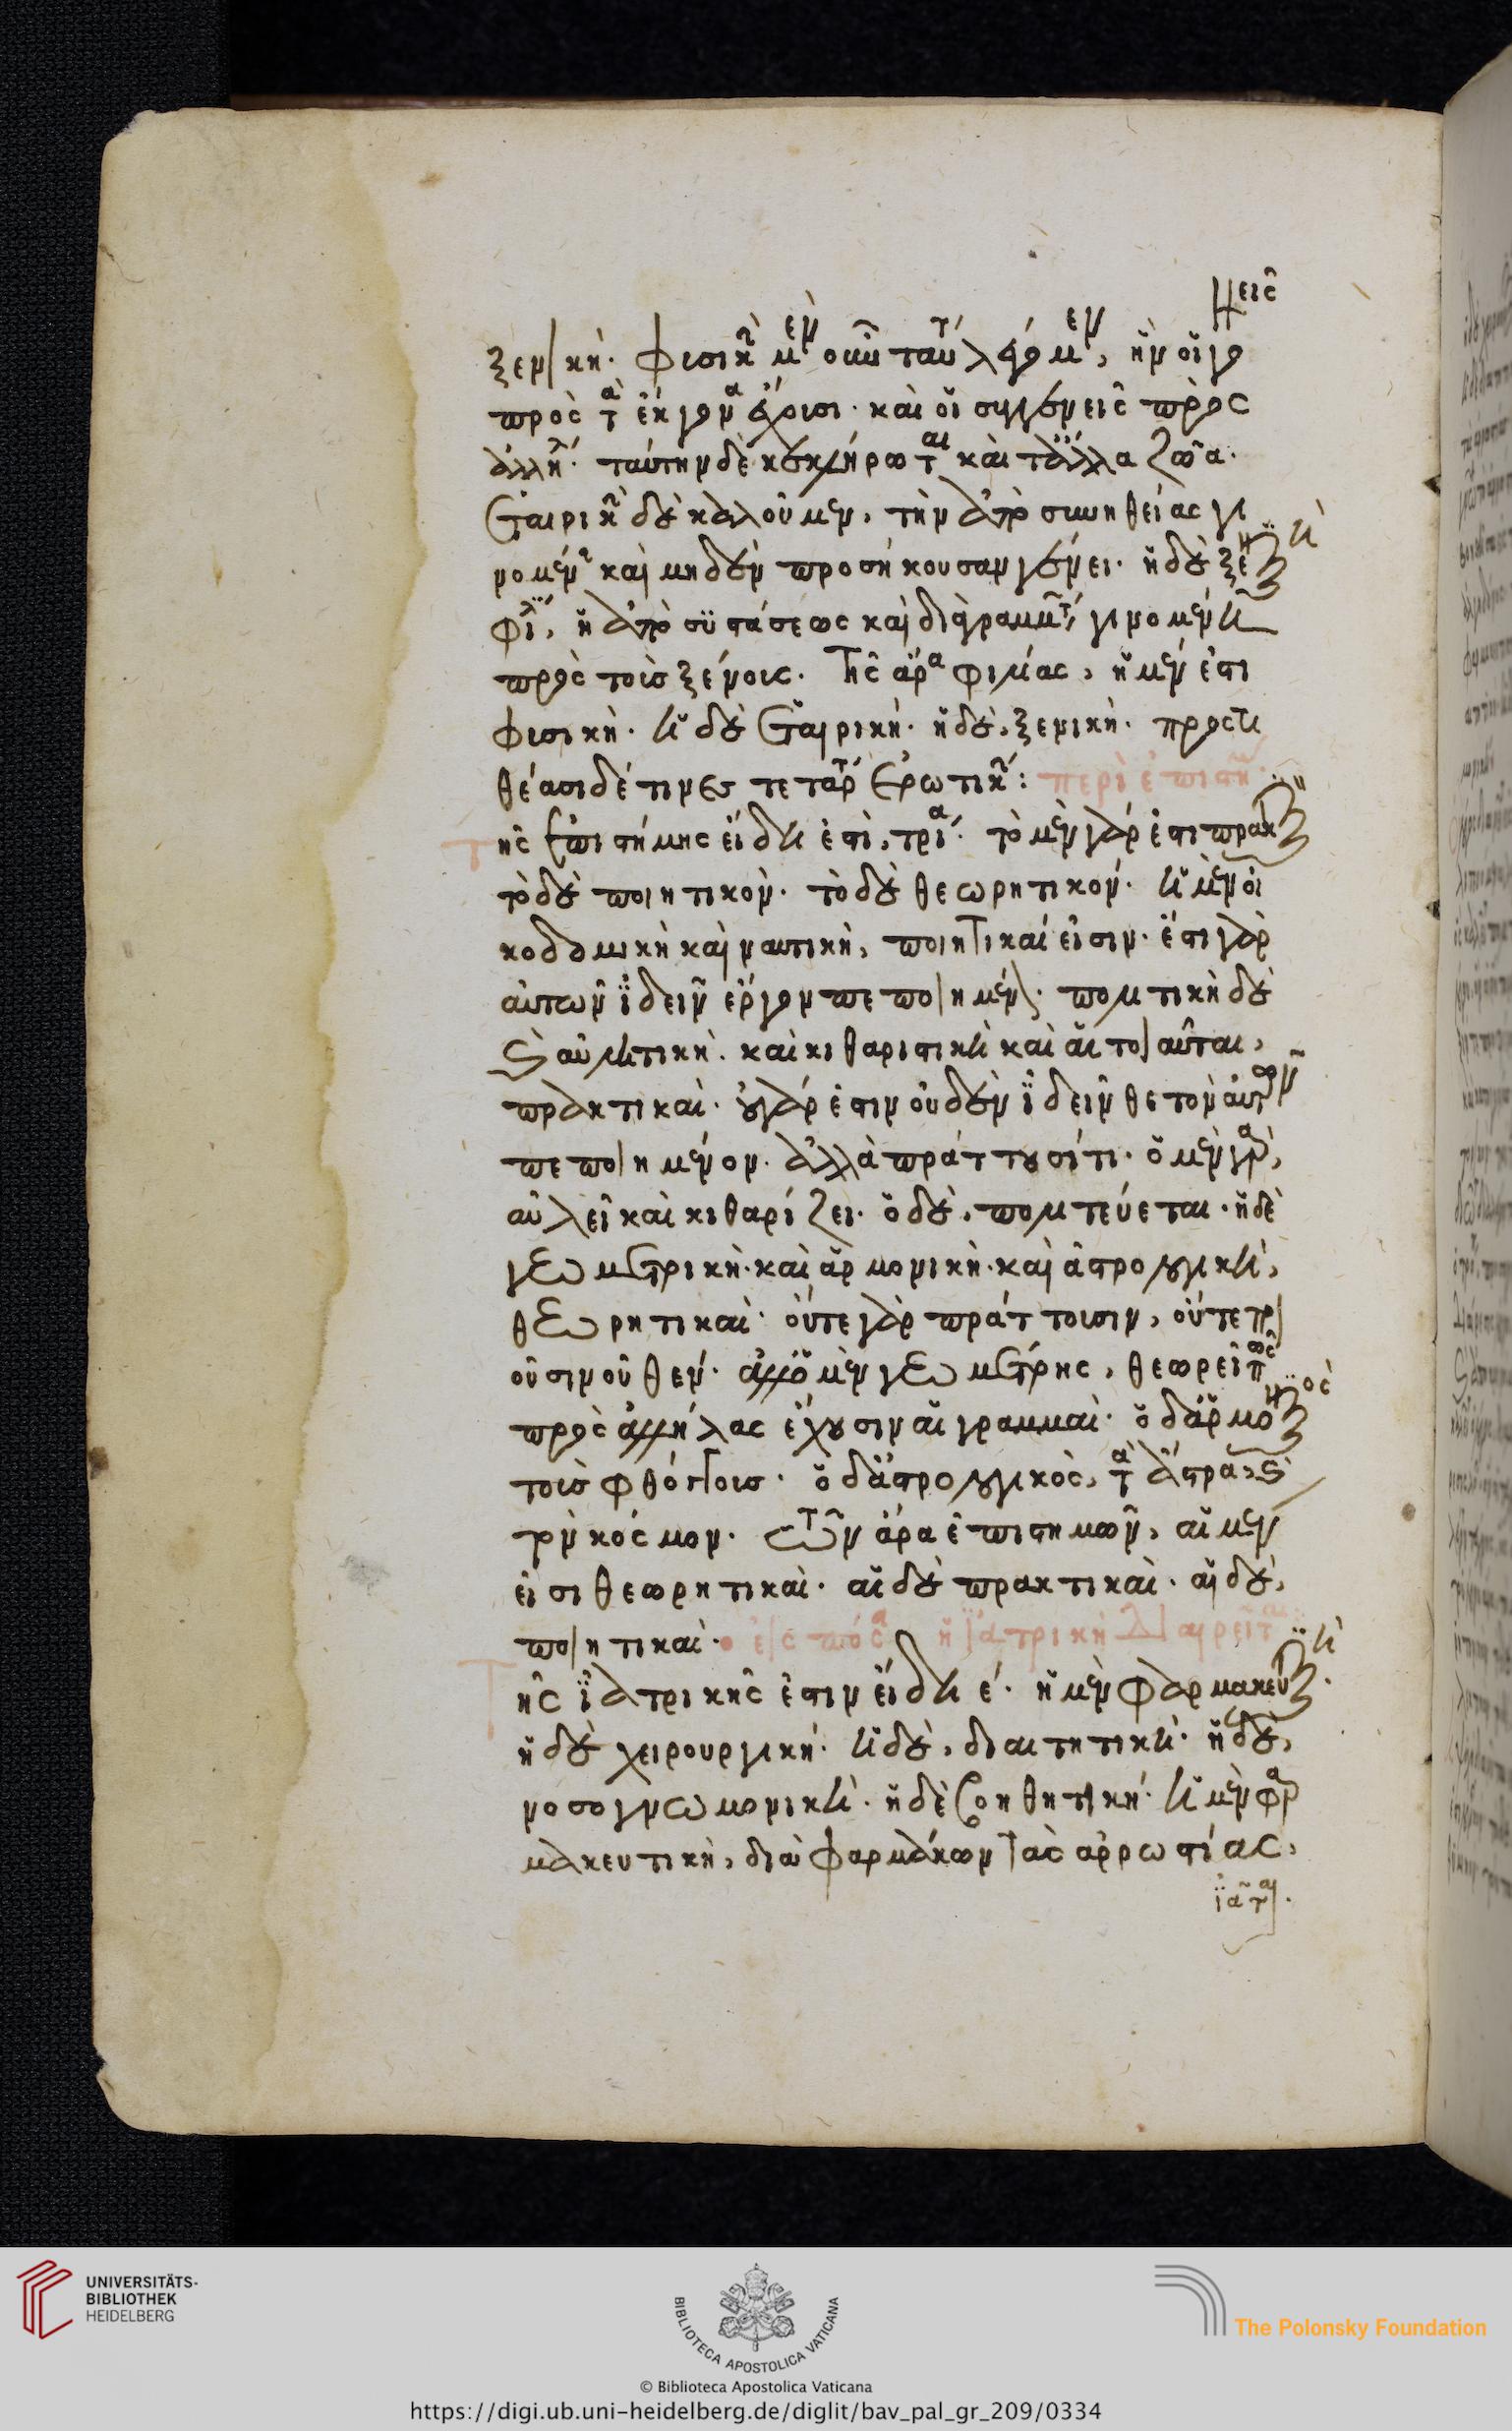 ξενικὴ. Φισικὴν μὲν οὖν ταύτην λέγομεν, ἣν οἱ γο
νεῖς
πρὸς τὰ ἔκγονα ἔχουσι. καὶ οἱ συγγενεῖς πρὸς
ἀλλήλ. ταύτην δὲ κεκλήρωται καὶ τἄλλα ζῶα.
Ἑταιρικὴν δὲ καλοῦμεν, τὴν ἀπὸ συνηθείας γι
νομένην καὶ μηδὲν προσήκουσαν γένει. ἡ δὲ ξενικὴ
φιλία, ἡ ἀπὸ συστάσεως καὶ διὰ γραμμάτ γινομένη
πρὸς τοὶς ξένοις. Τῆς ἄρα φιλίας, ἡ μέν ἐστι
φισικὴ. ἡ δὲ ἑταιρική. ἡ δὲ, ξενικὴ. προστι
θέασι δέ τινες τετάρτην ἐρωτικήν: περὶ ἐπιστήμ
Τῆς ἐπιστήμης εἴδη ἐστὶ, τρία. τὸ μὲν γάρ ἐστι πρακ
τὸ δὲ ποιητικὸν. τὸ δὲ θεωρητικόν. ἡ μὲν οἰ
κοδομικὴ καὶ ναυτικὴ, ποιητικαί εἰσιν. ἔστι γὰρ
αὐτῶν ἰδεῖν ἔργον πεποιημέν. πολιτικὴ δὲ
καὶ αὐλητικὴ. καὶ κιθαριστικὴ καὶ αἱ τοιαῦται,
πρακτικαὶ. οὐ γάρ ἐστιν οὐδὲν ἰδεῖν θετὸν αὐτῶν
πεποιημένον. ἀλλὰ πράττουσί τι. ὁ μὲν γὰρ,
αὐλεῖ καὶ κιθαρίζει. ὁ δὲ, πολιτεύεται. ἡ δὲ
γεωμετρικὴ. καὶ ἁρμονικὴ. καὶ ἀστρολογικὴ,
θεωρητικαὶ. οὔτε γὰρ πράττοισιν, οὔτε ποι
οῦσιν οὐθεν. ἀλλ' ὁ μὲν γεωμέτρης, θεωρεῖ πῶς
πρὸς ἀλλήλας ἔχουσιν αἱ γραμμαὶ. ὁ δ' ἁρμονικὸς
τοὶς φθόγγοις. ὁ δ' ἀστρολογικὸς, τὰ ἄστρα, καὶ
τὸν κόσμον. Τῶν ἄρα ἐπιστημῶν, αἱ μέν
εἰσι θεωρητικαὶ. αἱ δὲ πρακτικαὶ. αἱ δὲ,
ποιητικαὶ. εἰς πόσα ἡ ἰατρικὴ διαιρεῖται
Τῆς ἰατρικῆς ἐστιν εἴδη ε΄. ἡ μὲν φαρμακευτικὴ.
ἡ δὲ χειρουργική. ἡ δὲ, διαιτητικὴ. ἡ δὲ,
νοσογνωμονικὴ. ἡ δὲ βοηθητική. ἡ μὲν φαρ
μακευτικὴ, διὰ φαρμάκων τὰς ἀρρωστίας,
ἰᾶται.
UNIVERSITÄTS-
BIBLIOTHEK
HEIDELBERG
BIBLIOTECA APOSTOLICA VATICANA
The Polonsky Foundation
© Biblioteca Apostolica Vaticana
https://digi.ub.uni-heidelberg.de/diglit/bav_pal_gr_209/0334